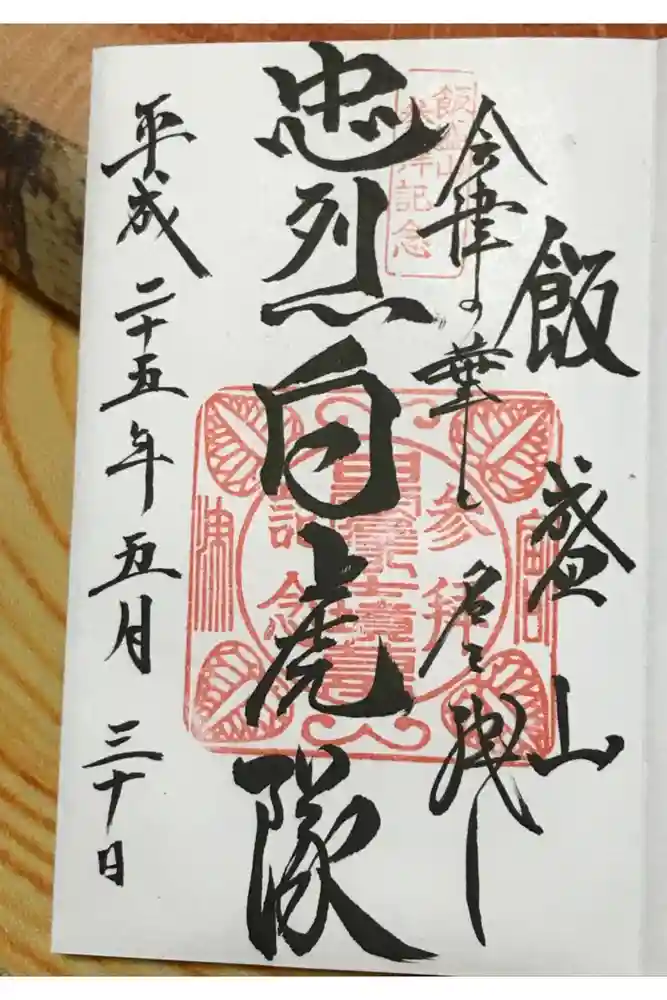 飯盛山
会津の華と
名を残し
忠烈白虎隊
平成二十五年五月三十日
飯盛山
参拝記念
参拝
記念